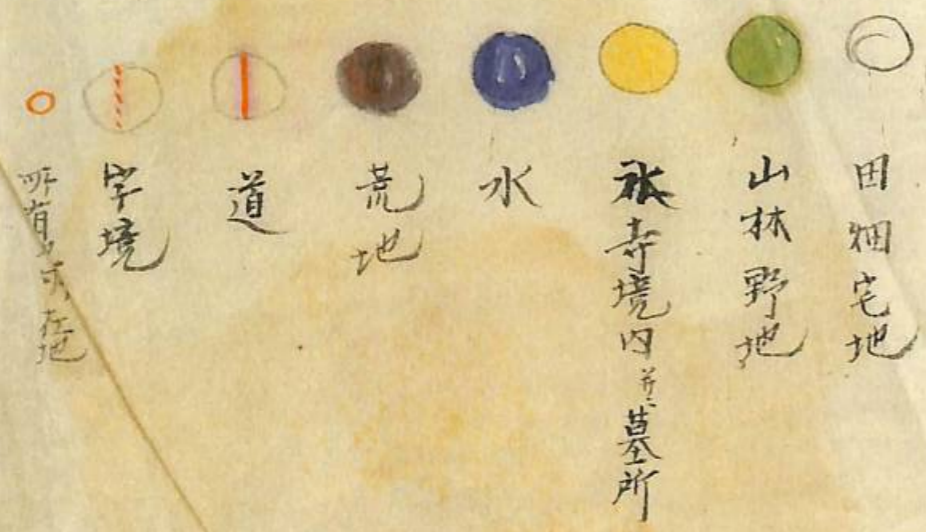 田畑宅地
山林野地
社寺境内并ニ墓所
水
荒地
道
字境
所有 在地